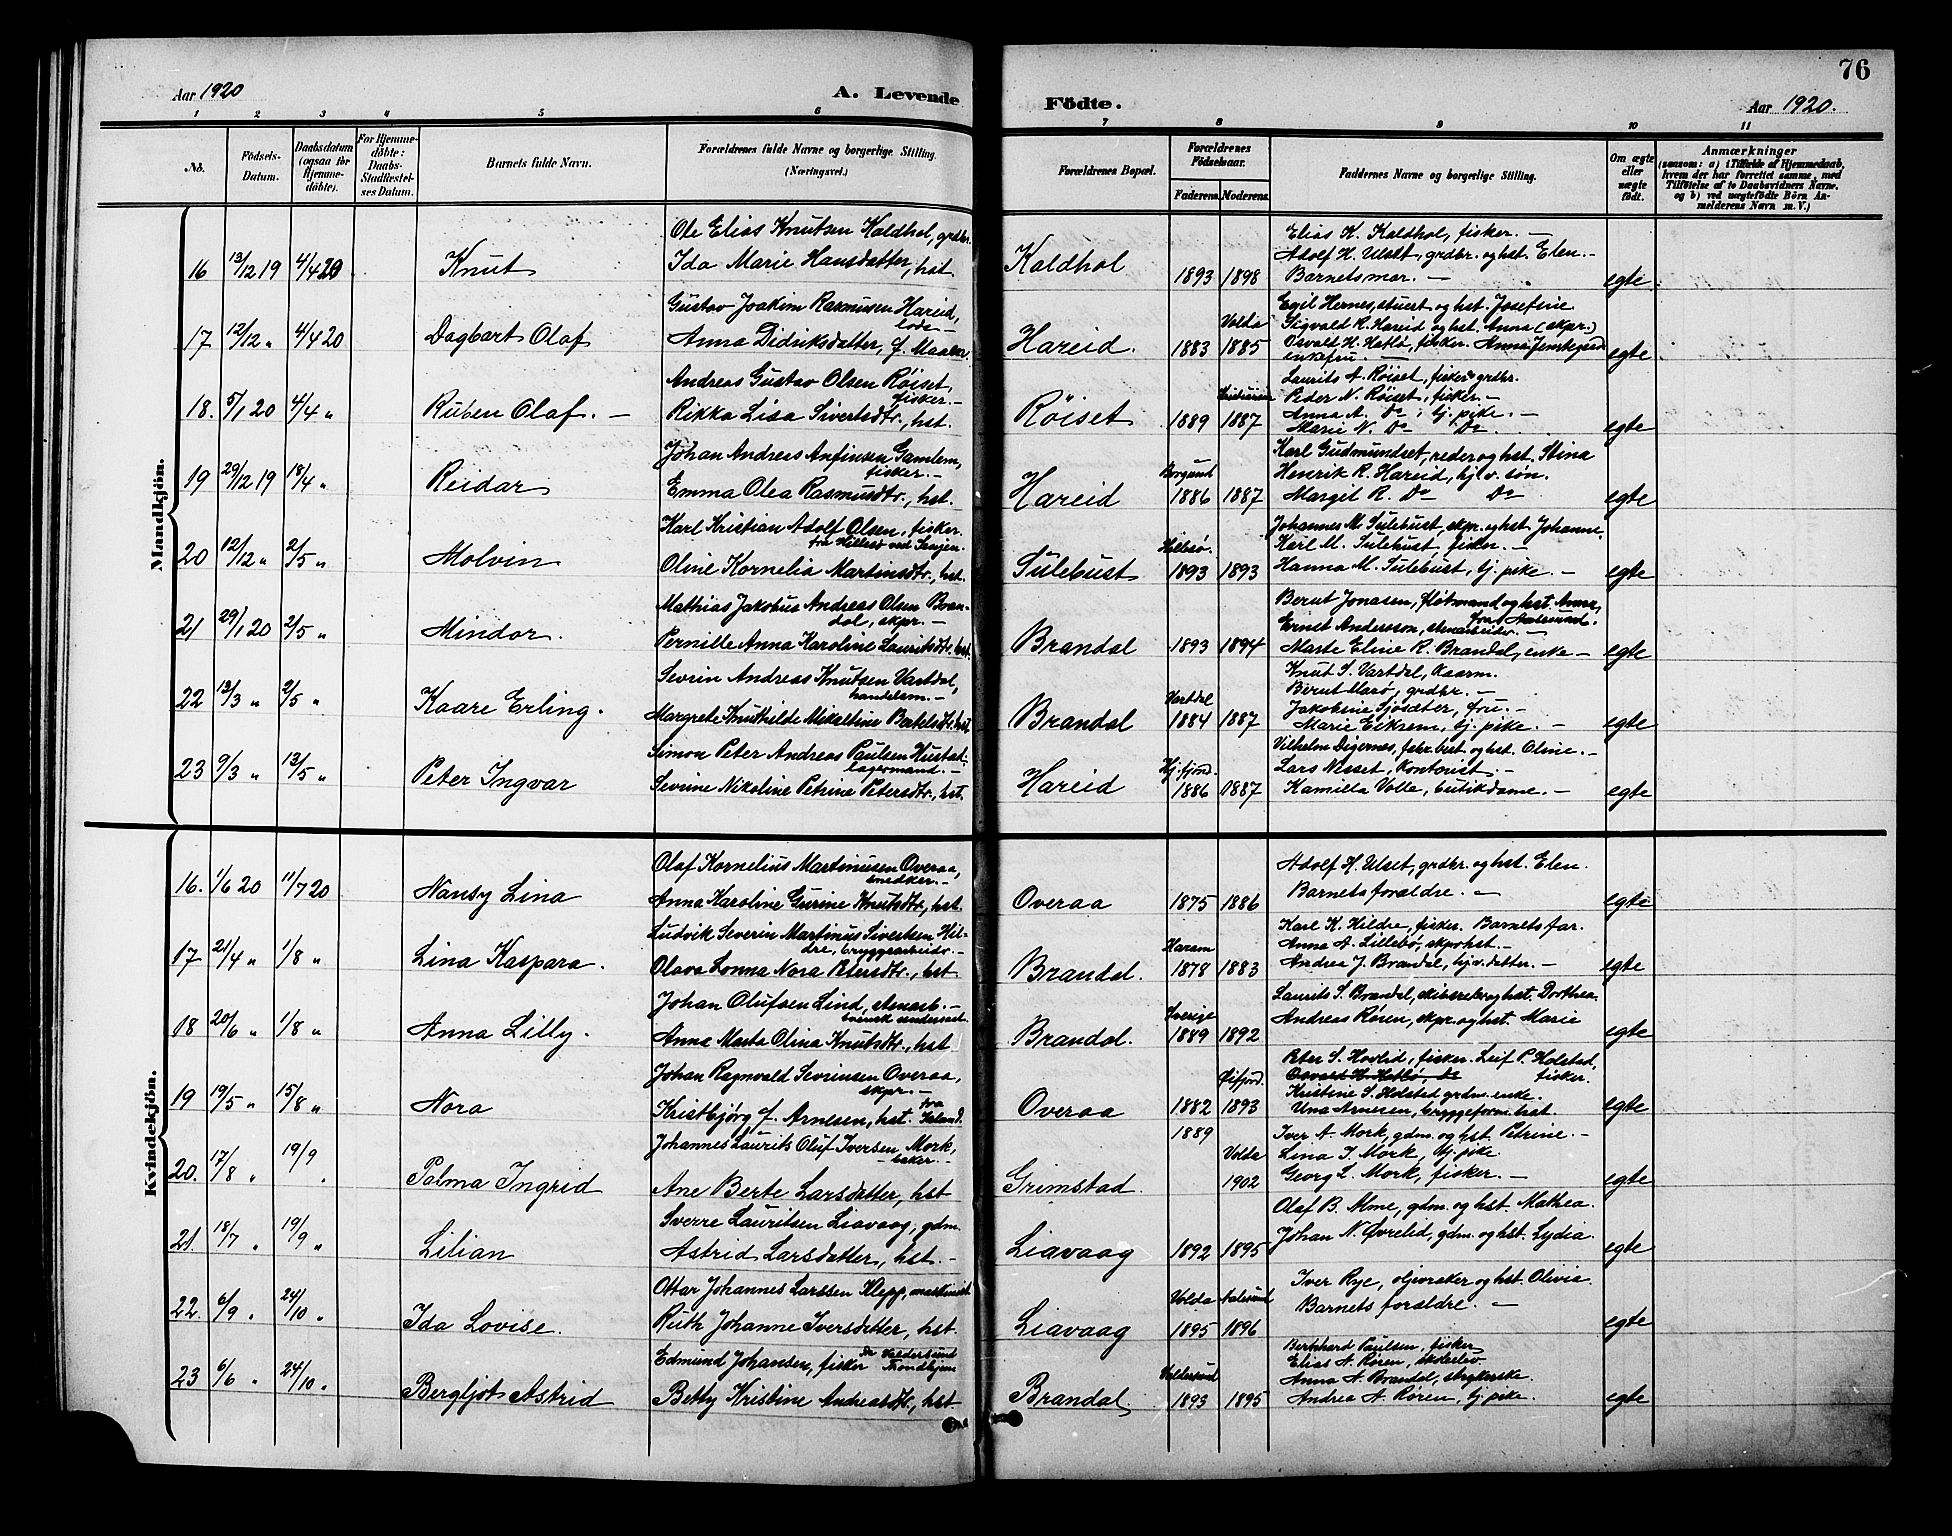 76
Aar 1920
A. Levende
Födte.
Aar 1920.
1 2 3 4 5 6 7 8 9 10 11
No.
Födsels-Datum.
Daabsdatum (ogsaa for Hjemme-döbte).
For Hjemme-döbte: Daabs-Stadfæstel-ses Datum.
Barnets fulde Navn.
Forældrenes fulde Navne og borgerlige Stilling.
(Næringsvei.)
Forældrenes Bopæl.
Forældrenes Födselsaar.
Faderens. Moderens.
Faddernes Navne og borgerlige Stilling.
Om ægte eller uægte födt.
Anmærkninger
(saasom: a) i Tilfælde af Hjemmedaab, hvem der har forrettet samme, med Tilföielse af to Daabsvidners Navne, og b) ved uægtefödte Börn An-melderens Navn m. V.)
Mandkjön.
16 13/12 19 4/4 20 Knut
Ole Elias Knutsen Kaldhol, grdbr.
Ida Marie Hansdatter, hst
Kaldhol 1893 1898
Elias K. Kaldhol, fisker. —
Adolf H. Ulset, grdbr. og hst. Elen. —
Barnets mor. —
egte
17 12/12 " 4/4 20 Dagbart Olaf
Gustav Joakim Rasmussen Hareid,
lods —
Anna Didriksdatter, f. Maaker
Hareid. 1883 Volda 1885
Egil Hernes, stuert og hst. Josefine
Sigvald R. Hareid og hst. Anna (skpr.)
Osvald H. Hatlø, fisker. Anna
enkefru. —
egte
18. 5/1 20 4/4 " Ruben Olaf. —
Andreas Gustav Olsen Røiset,
fisker. —
Rikka Lisa Sivertsdtr., hst.
Røiset 1889 1887
Laurits A. Røiset, fisker grdbr.
Peder N. Røiset, fisker —
Anna A. Do , tj. pike. —
Marie N. Do Do.
egte
19 29/12 19 18/4 " Reidar
Johan Andreas Anfinsen Gamlem,
fisker —
Emma Olea Rasmusdtr., hst.
Hareid Borgund 1886 1887
Karl Gudmundset, reder og hst. Stina
Henrik R. Hareid, hjlv. søn.
Margit R. Do Do
egte
20 12/12 " 2/5 " Molvin
Karl Kristian Adolf Olsen, fisker
fra Hillesø ved Senjen.
Oline Kornelia Martinsdtr., hst.
Sulebust Hillesø. 1893 1893
Johannes M. Sulebust, skpr. og hst. Johanne.
Karl M. Sulebust, fisker. —
Hanna M. Sulebust, tj. pike. —
egte
21 29/1 20 2/5 " Mindor.
Mathias Jakobus Andreas Olsen Bran-
dal, skpr. —
Pernille Anna Karoline Lauritsdtr. hst.
Brandal 1893 1894
Berut Jonasen, fløtmand og hst. Anna,
fra Aalesund.
Ernst Andersson, stenarbeider. —
Marte Eline R. Brandal, enke —
egte
22 13/3 " 2/5 " Kaare Erling.
Sevrin Andreas Knutsen Vartdal,
handelsm. —
Margrete Knuthilde Mikaeline Bertelsdtr. hst
Brandal Vartdal 1884 1887
Knut S. Vartdal, kaarm.
Berut Masø, grdbr. —
Jakobine Sjøsæter, fru. —
Marie Eiksem, tj. pike. —
egte
23 9/3 " 13/5 " Peter Ingvar
Simon Peter Andreas Paulsen Hustad.
lagermand. —
Sevrine Nikoline Petrine Petersdtr., hst.
Hareid Hj. fjord. 1886 1887
Vilhelm Digernes, fabr. best. og hst. Oline. —
Lars Nesset, kontorist. —
Kamilla Volle, butikdame. —
egte
Kvindekjön.
16. 1/6 20 11/7 20 Nansy Lina
Olaf Kornelius Martinusen Overaa,
snedker. —
Anna Karoline Gurine Knutsdtr., hst.
Overaa 1875 1886
Adolf H. Ulset, grdbr. og hst. Elen
Barnets forældre. —
egte
17 21/4 " 1/8 " Lina Kaspara.
Ludvik Severin Martinus Sivertsen Hil-
dre, bryggearbeidr. —
Olava Lonna Nora Petersdtr., hst
Brandal. Haram 1878 1883
Karl K. Hildre, fisker. Barnets far.
Anna A. Lillebø, skpr hst. —
Andrea J. Brandal, hjv. datter. —
egte
18 20/6 " 1/8 " Anna Lilly.
Johan Olufsen Lind, stenarb. —
svensk undersaat.
Anna Marta Olina Knutsdtr., hst.
Brandal. Sverige 1889 1892
Laurits S. Brandal, skibsreder og hst. Dorthea
Andreas Røren, skpr. og hst. Marie
egte
19 19/5 " 15/8 " Nora
Johan Ragnvald Sevrinsen Overaa,
skpr. —
Kristbjørg f. Arnesen, hst. fra Island.
Overaa 1882 Øifjord. 1893
Peter S. Hovlid, fisker. Leif P. Holstad,
Osvald H. Hatlø, Do fisker.
Kristine S. Holstad grdm. enke.
Una Arnesen, bryggeform. hst.
egte
20. 17/8 " 19/9 " Palma Ingrid
Johannes Laurits Oluf Iversen Mork,
— baker. —
Ane Berte Larsdatter, hst
Grimstad. 1889 Volda 1902
Iver A. Mork, gdm. og hst. Petrine. —
Lina I. Mork, tj. pike.
Georg L. Mork, fisker. —
egte
21. 18/7 " 19/9 " Lilian
Sverre Lauritsen Liavaag, gdm.
Astrid Larsdatter, hst. —
Liavaag 1892 1895
Olaf B. Alme, gdm. og hst. Mathea.
Johan N. Øvrelid, gdm. og hst. Lydia.
egte
22. 6/9 " 24/10 " Ida Lovise.
Ottar Johannes Larssen Klepp, maskinist
Ruth Johanne Iversdatter, hst.
Liavaag Volda 1895 Aalesund 1896
Iver Rye, oljevraker og hst. Olivia
Barnets forældre. —
egte
23 6/6 " 24/10 " Bergljot Astrid
Edmund Johansen, fisker fra Valdersund Trondhjem
Betty Kristine Andreasdtr., hst
Brandal. Valdersund 1893 1895
Bernhard Paulsen, fisker
Elias A. Røren, skoleelev.
Anna A. Brandal, strykerske.
Andrea A. Røren, tj. pike.
egte